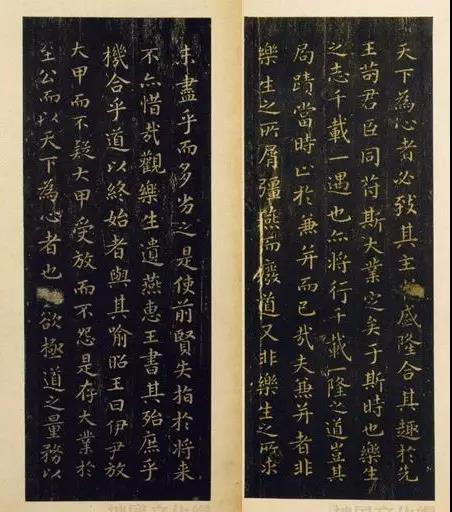 天下為心者必致其主盛隆合其趣於先
王苟君臣同符斯大業定矣于斯時也樂生
之志千載一遇也亦將行千載一隆之道豈其
局蹟當時止於兼并而已哉夫兼并者非
樂生之所屑彊燕而廢道又非樂生之所求
未盡乎而多劣之是使前賢失指於將來
不亦惜哉觀樂生遺燕惠王書其殆庶乎
機合乎道以終始者與其喻昭王曰伊尹放
大甲而不疑大甲受放而不怨是存大業於
至公而以天下為心者也欲極道之量務以